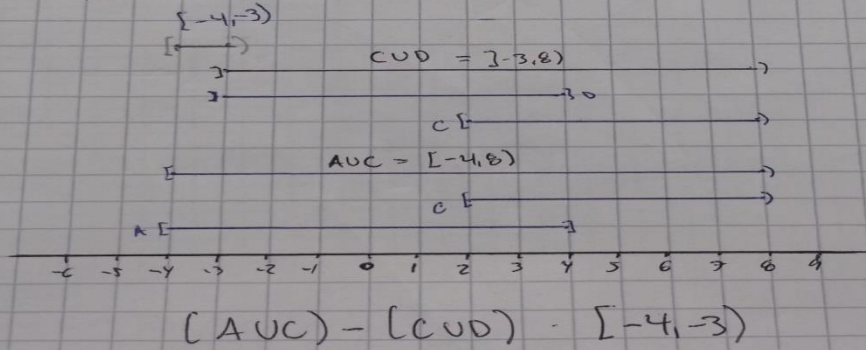 [-4,-3)
[ )
CUD = ]-3,8)
] )
] ] D
C [ )
AUC = [-4,8)
[ )
C [ )
A [ ]
-6 -5 -4 -3 -2 -1 0 1 2 3 4 5 6 7 8 9
(AUC) - (CUD) - [-4,-3)